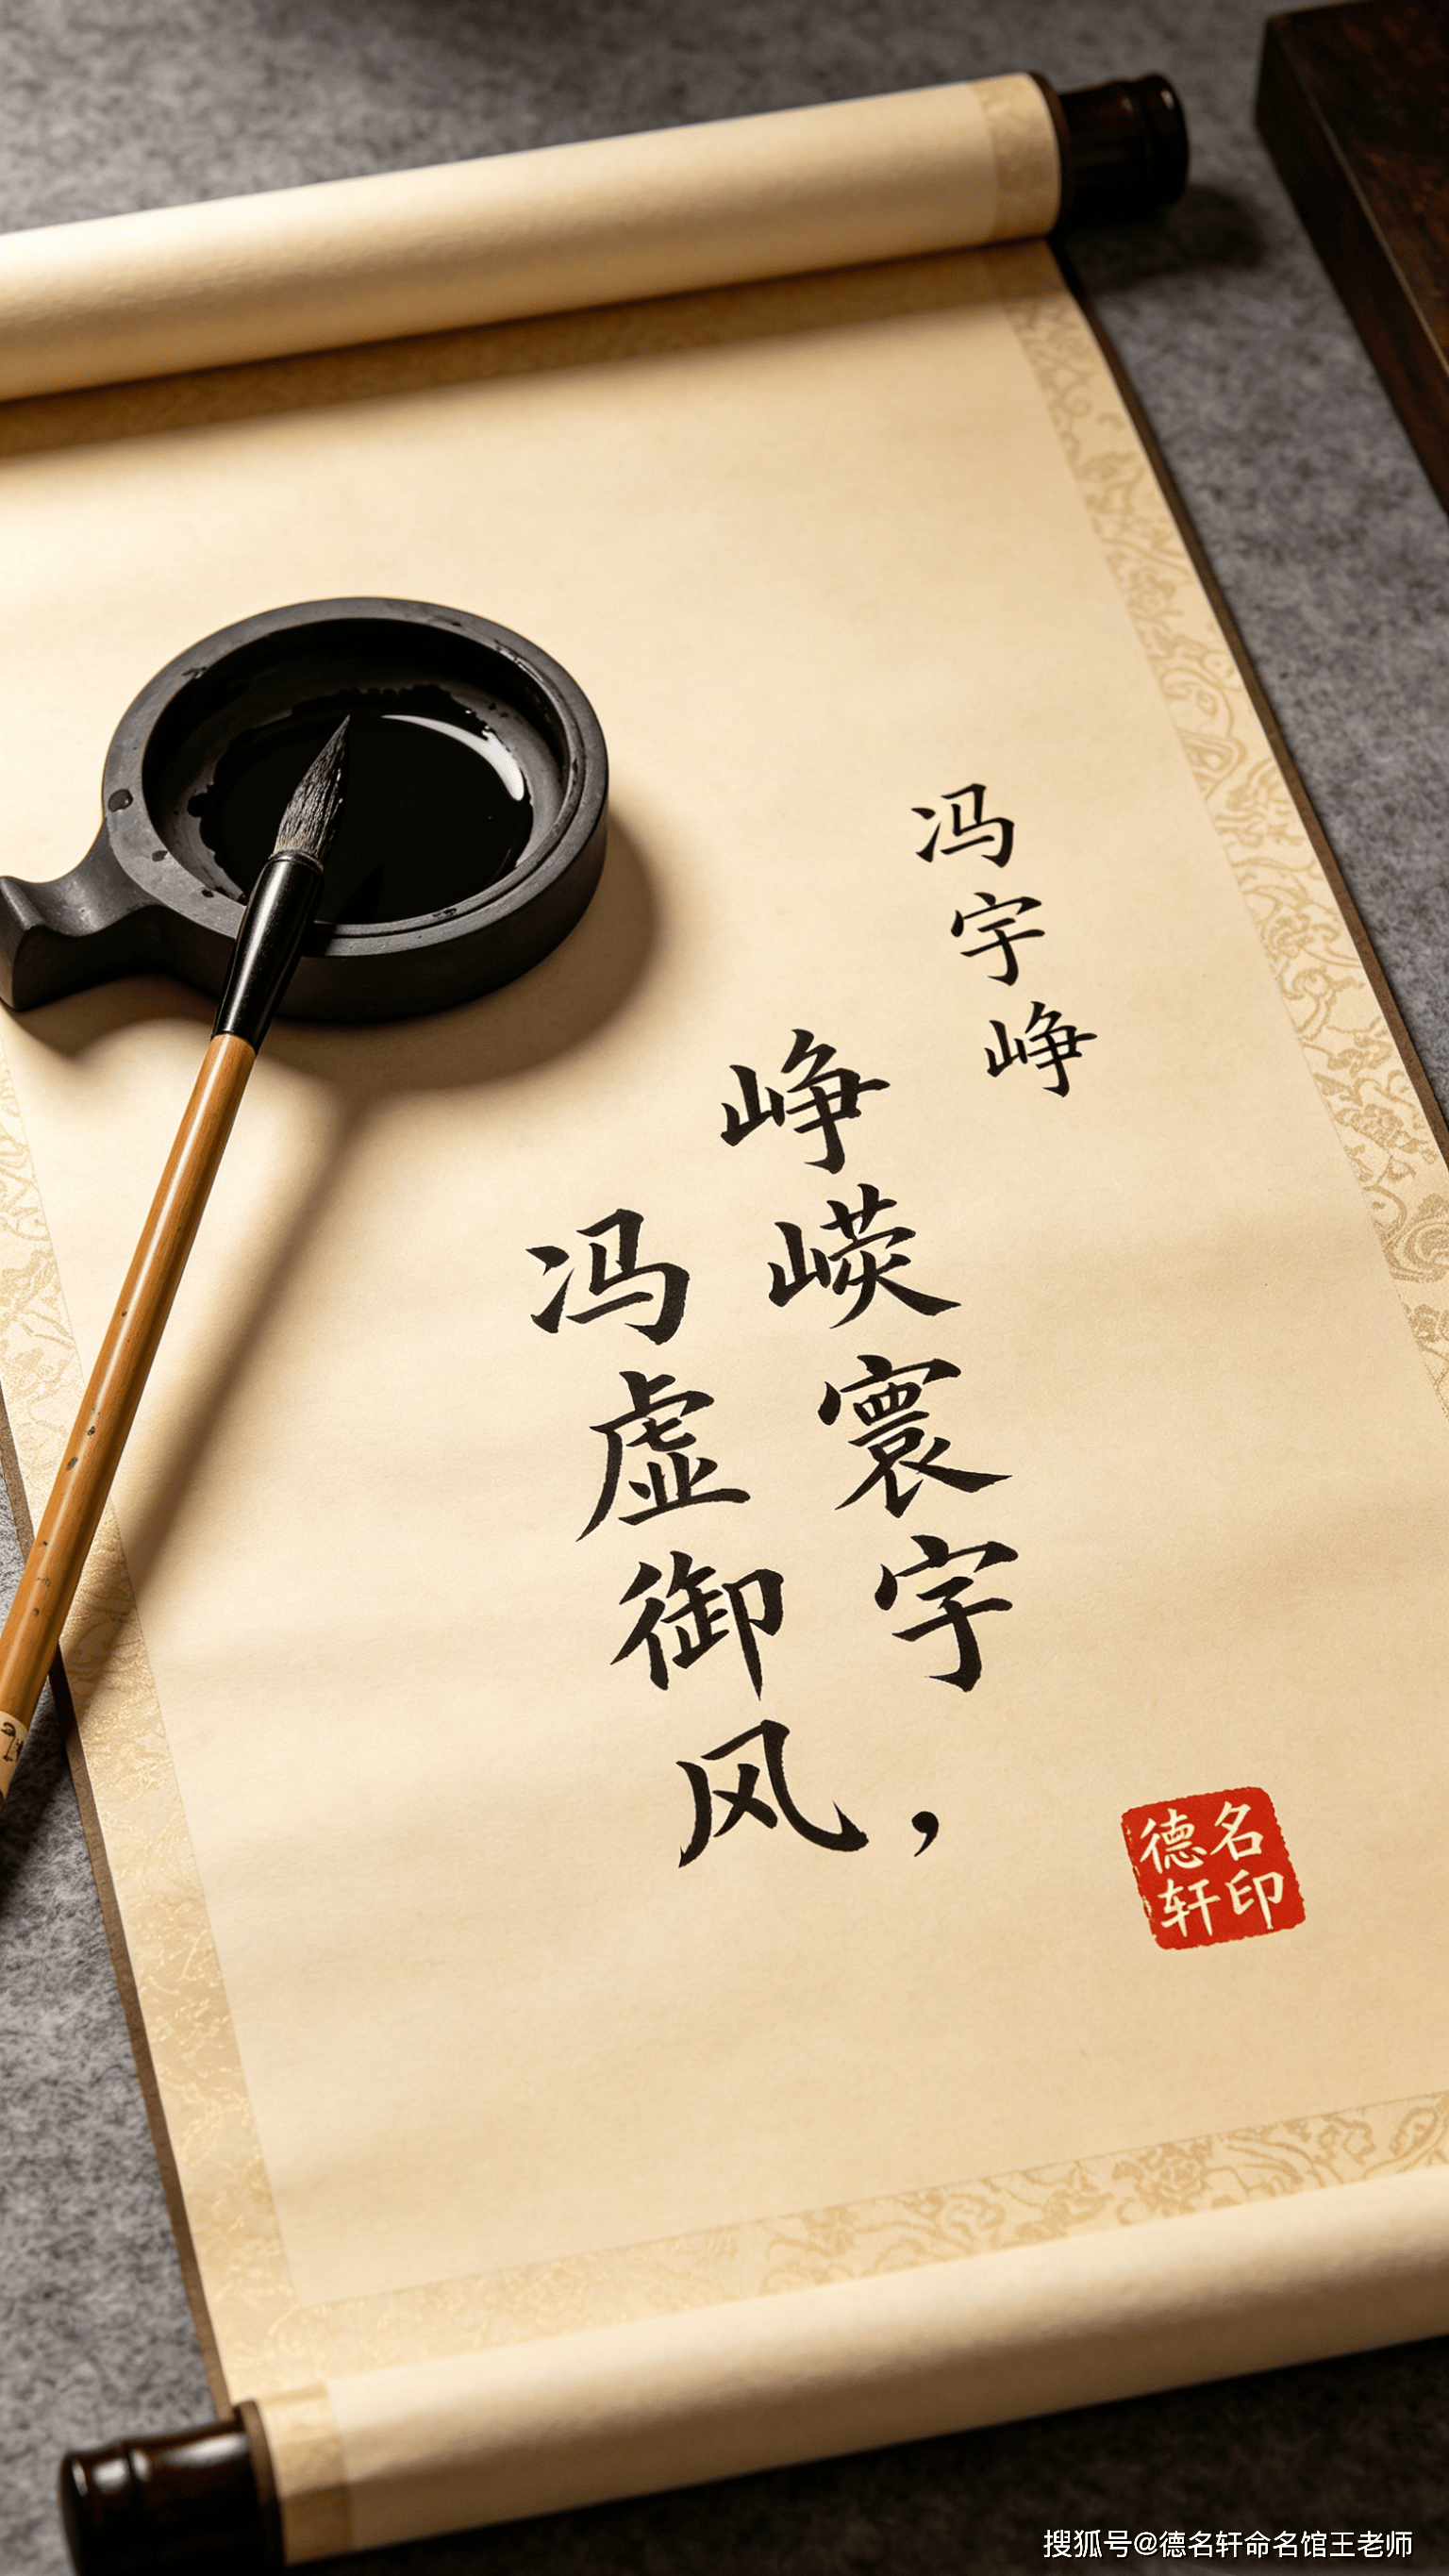 冯宇峥
峥嵘寰宇
冯虚御风，
德名
轩印
搜狐号@德名轩命名馆王老师